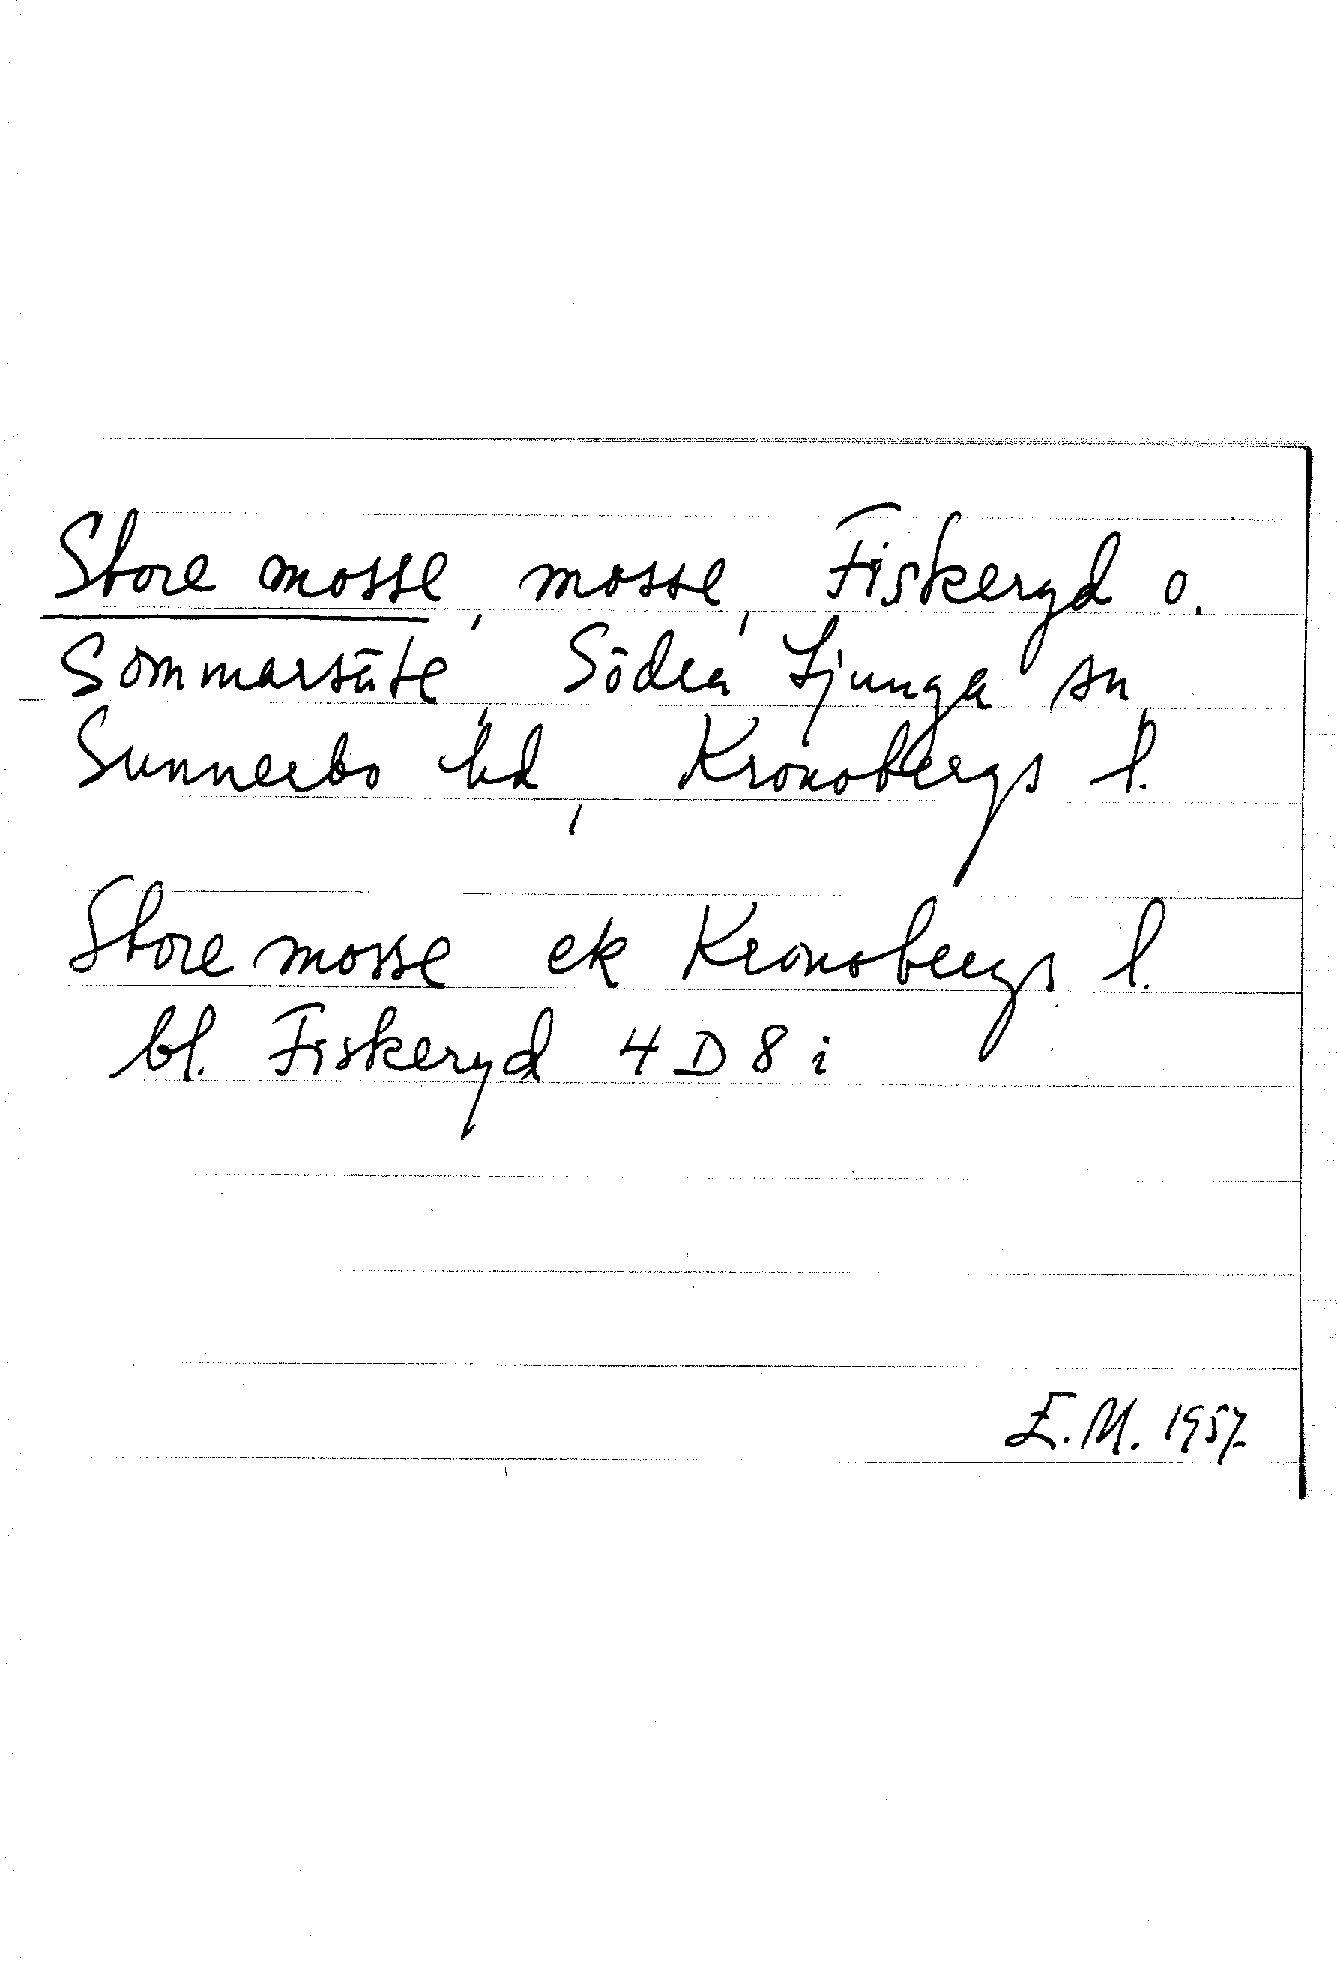 Store mosse, mosse, Fiskeryd o.
Sommarsäte, Södra Ljunga sn,
Sunnerbo hd, Kronobergs l.
Store mosse ek Kronobergs l.
bl. Fiskeryd 4 D 8 i
E.M. 1957.